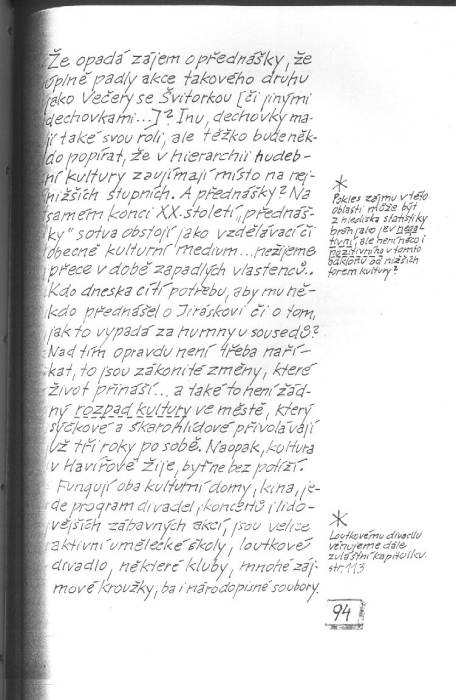 Že opadá zájem o přednášky, že
úplně padly akce takového druhu
jako Večery se Švitorkou [či jinými
dechovkami...]? Inu, dechovky ma-
jí také svou roli, ale těžko bude něk-
do popírat, že v hierarchii hudeb-
ní kultury zaujímají místo na nej-
nižších stupních. A přednášky? Na
samém konci XX. století „přednáš-
ky" sotva obstojí jako vzdělávací či
obecně kulturní medium... nežijeme
přece v době zapadlých vlastenců..
Kdo dneska cítí potřebu, aby mu ně-
kdo přednášel o Jiráskovi či o tom,
jak to vypadá za humny u sousedů?
Nad tím opravdu není třeba naří-
kat, to jsou zákonité změny, které
život přináší... a také to není žád-
ný rozpad kultury ve městě, který
sýčkové a škarohlídové přivolávají
už tři roky po sobě. Naopak, kultura
v Havířově žije, byť ne bez potíží.
Fungují oba kulturní domy, kina, je-
de program divadel, koncertů i lido-
vějších zábavných akcí, jsou velice
aktivní umělecké školy, loutkové
divadlo, některé kluby, mnohé záj-
mové kroužky, ba i národopisné soubory.
*
Pokles zájmu v této
oblasti může být
z hlediska statistiky
brán jako jev nega-
tivní, ale není něco i
pozitivního v tomto
odklonu od nižších
forem kultury?
*
Loutkovému divadlu
věnujeme dále
zvláštní kapitolku.
str. 113
94